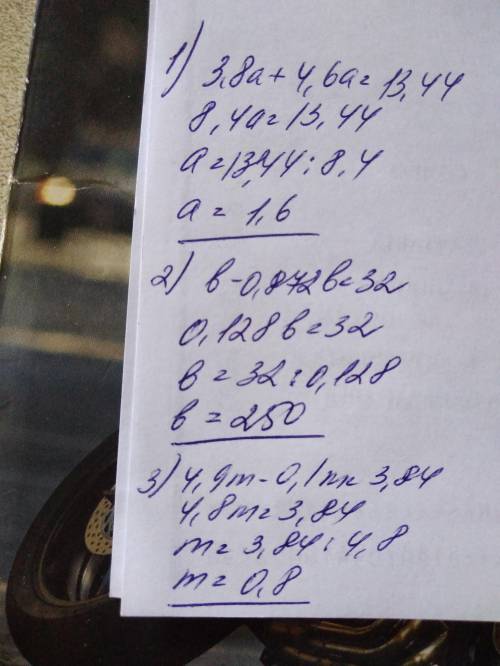 1)
3,8a+4,6a=13,44
8,4a=13,44
a=13,44:8,4
a=1,6
2) в-0,872в=32
0,128в=32
в=32:0,128
в=250
3) 4,9m-0,1m=3,84
4,8m=3,84
m=3,84:4,8
m=0,8